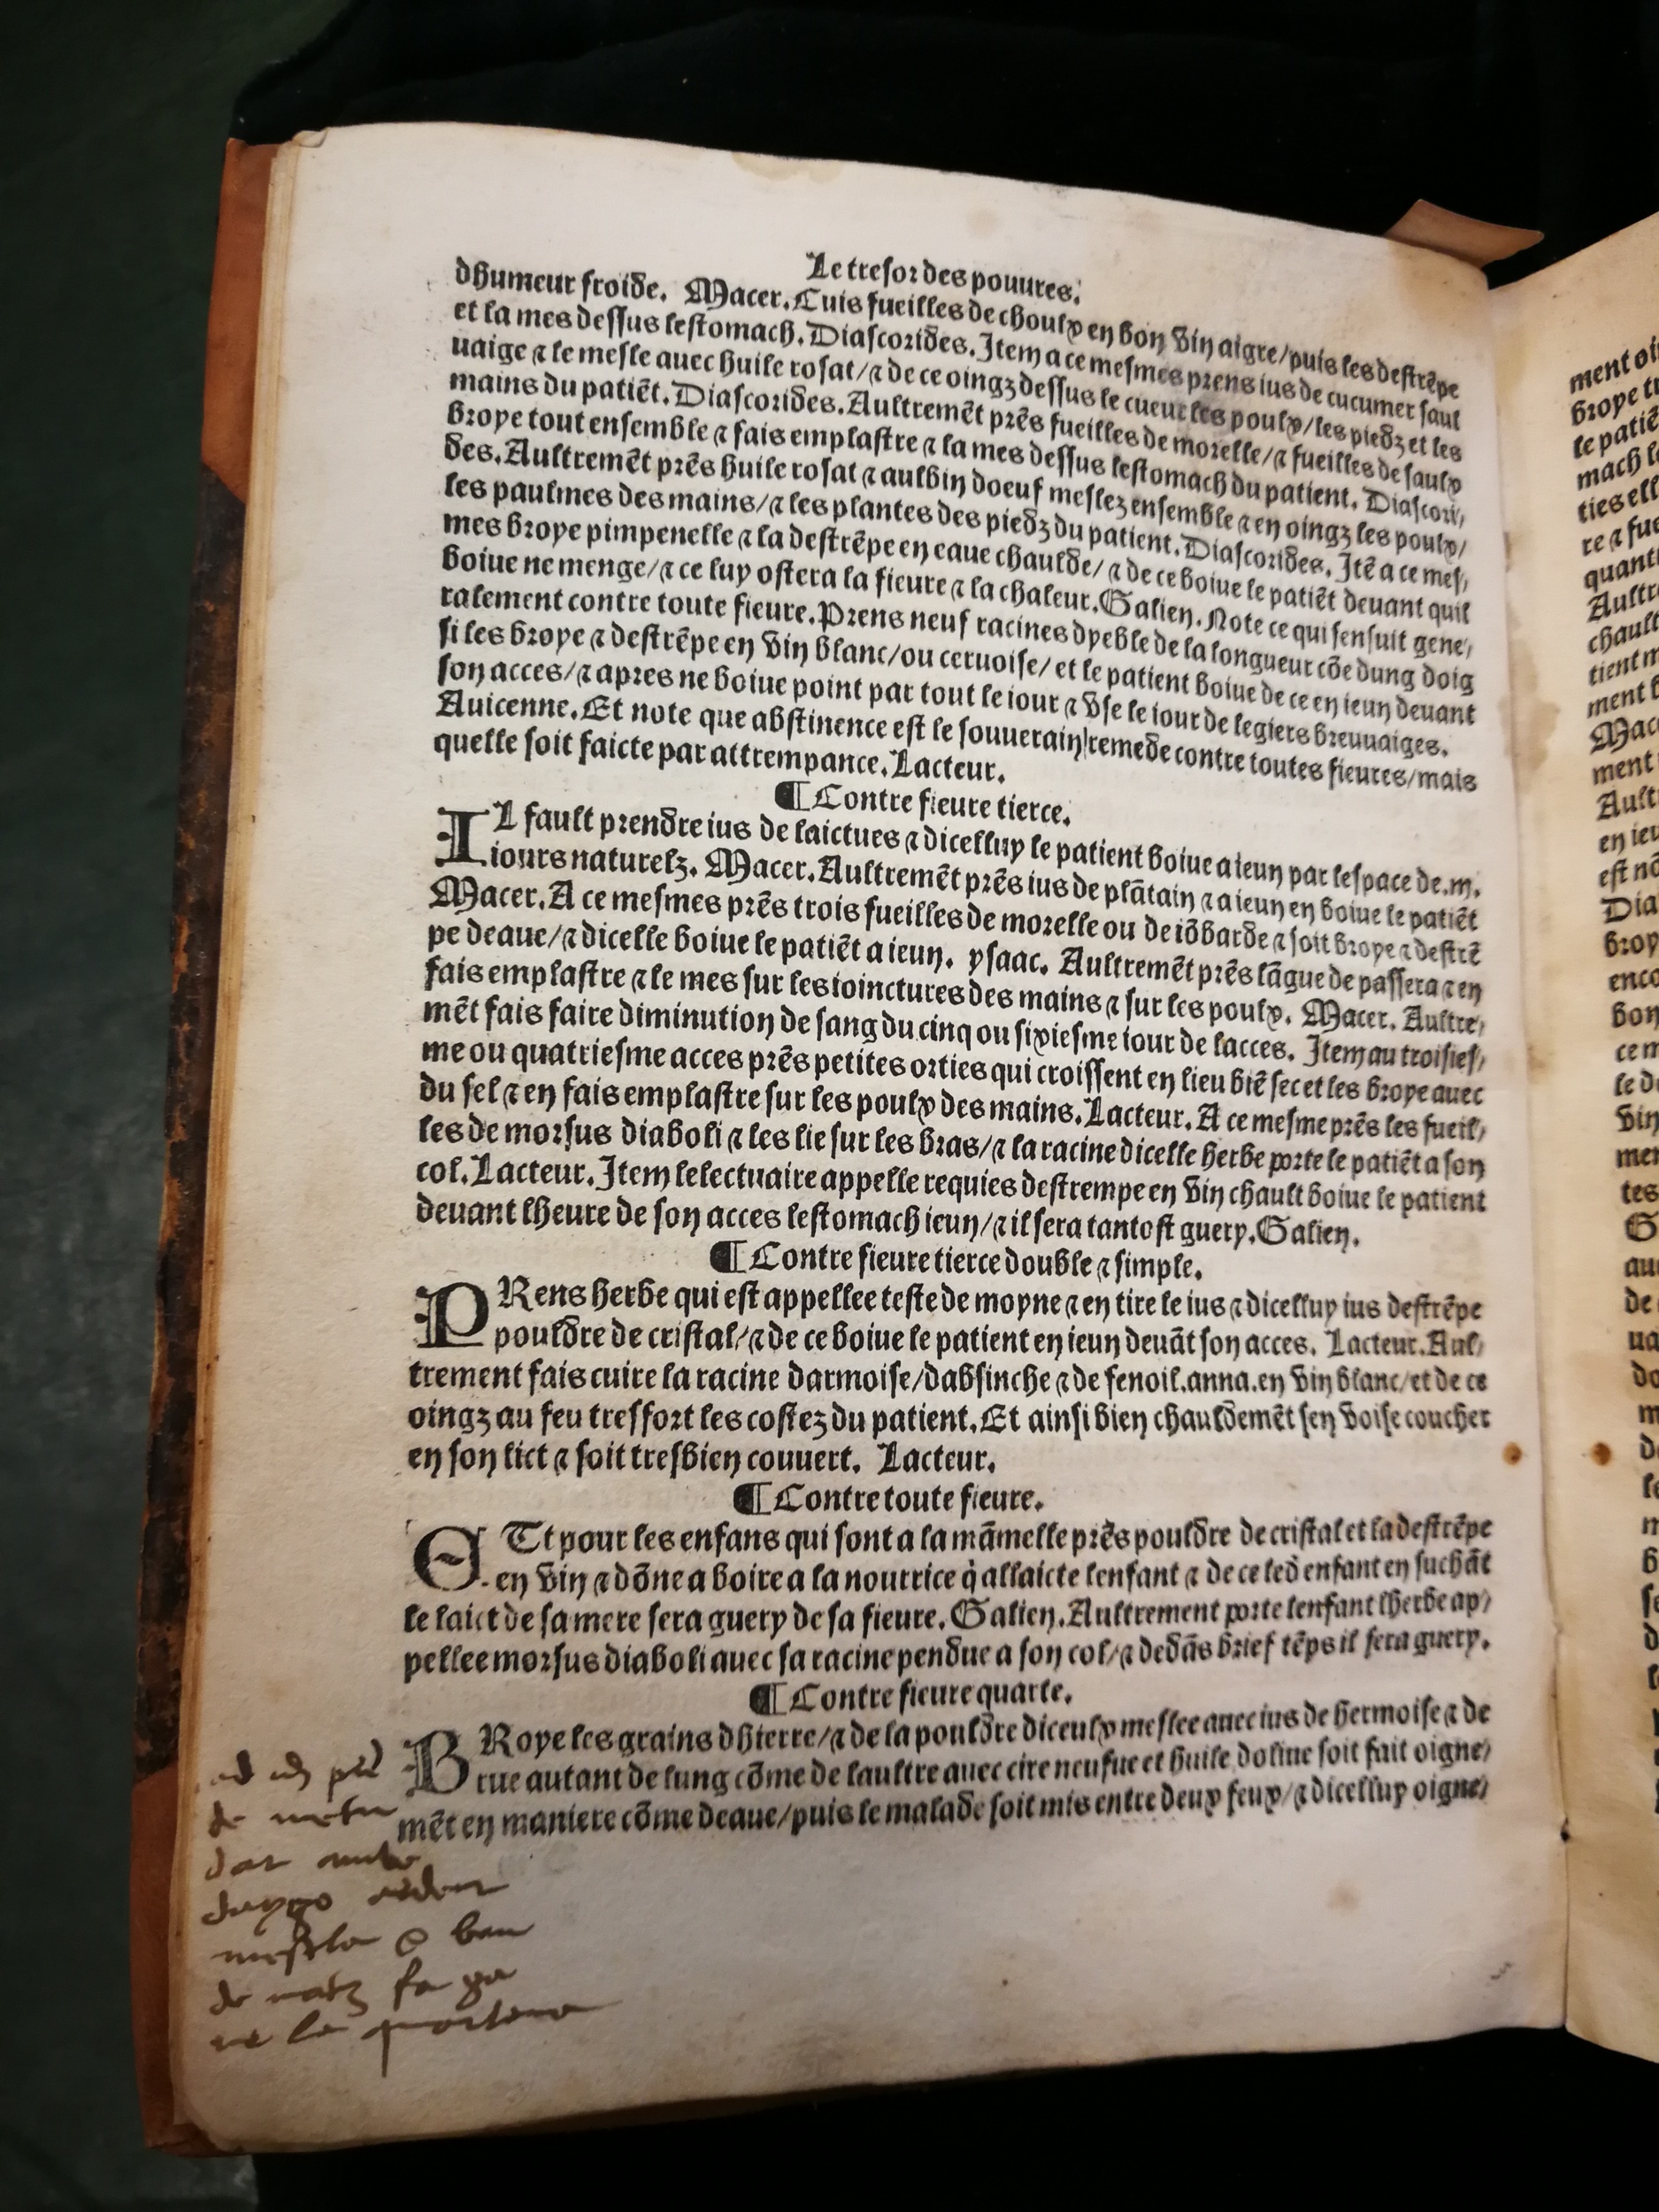 Le tresor des pouures.
dhumeur froide. Macer. Cuis fueilles de choulx en bon vin aigre/puis les destrēpe
et la mes dessus lestomach. Diascorides. Item a ce mesmes prens ius de cucumer saul
uaige ⁊ le mesle auec huile rosat/⁊ de ce oingz dessus le cueur les poulx/les piedz et les
mains du patiēt. Diascorides. Aultremēt prēs fueilles de morelle/⁊ fueilles de saulx
broye tout ensemble ⁊ fais emplastre ⁊ la mes dessus lestomach du patient. Diascori/
des. Aultremēt prēs huile rosat ⁊ aulbin doeuf meslez ensemble ⁊ en oingz les poulx/
les paulmes des mains/⁊ les plantes des piedz du patient. Diascorides. Itē a ce mes/
mes broye pimpenelle ⁊ la destrēpe en eaue chaulde/⁊ de ce boiue le patiēt deuant quil
boiue ne menge/⁊ ce luy ostera la fieure ⁊ la chaleur. Galien. Note ce qui sensuit gene/
ralement contre toute fieure. Prens neuf racines dyeble de la longueur cōe dung doig
si les broye ⁊ destrēpe en vin blanc/ou ceruoise/ et le patient boiue de ce en ieun deuant
son acces/⁊ apres ne boiue point par tout le iour ⁊ vse le iour de legiers breuuaiges.
Auicenne. Et note que abstinence est le souuerain remede contre toutes fieures/mais
quelle soit faicte par attrempance. Lacteur.
¶ Contre fieure tierce.
IL fault prendre ius de laictues ⁊ dicelluy le patient boiue a ieun par lespace de .iij.
iours naturelz. Macer. Aultremēt prēs ius de plātain ⁊ a ieun en boiue le patiēt
Macer. A ce mesmes prēs trois fueilles de morelle ou de iōbarde ⁊ soit broye ⁊ destrē
pe deaue/⁊ dicelle boiue le patiēt a ieun. ysaac. Aultremēt prēs lāgue de passera ⁊ en
fais emplastre ⁊ le mes sur les ioinctures des mains ⁊ sur les poulx. Macer. Aultre/
mēt fais faire diminution de sang du cinq ou sixiesme iour de lacces. Item au troisies/
me ou quatriesme acces prēs petites orties qui croissent en lieu biē sec et les broye auec
du sel ⁊ en fais emplastre sur les poulx des mains. Lacteur. A ce mesme prēs les fueil/
les de morsus diaboli ⁊ les lie sur les bras/⁊ la racine dicelle herbe porte le patiēt a son
col. Lacteur. Item lelectuaire appelle requies destrempe en vin chault boiue le patient
deuant lheure de son acces lestomach ieun/⁊ il sera tantost guery. Galien.
¶ Contre fieure tierce double ⁊ simple.
PRens herbe qui est appellee teste de moyne ⁊ en tire le ius ⁊ dicelluy ius destrēpe
pouldre de cristal/⁊ de ce boiue le patient en ieun deuāt son acces. Lacteur. Aul/
trement fais cuire la racine darmoise/dabsinche ⁊ de fenoil .anna. en vin blanc/et de ce
oingz au feu tresfort les costez du patient. Et ainsi bien chauldemēt sen voise coucher
en son lict ⁊ soit tresbien couuert. Lacteur.
¶ Contre toute fieure.
ETt pour les enfans qui sont a la māmelle prēs pouldre de cristal et la destrēpe
en vin ⁊ dōne a boire a la nourrice q̇ allaicte lenfant ⁊ de ce led̄ enfant en suchāt
le laict de sa mere sera guery de sa fieure. Galien. Aultrement porte lenfant lherbe ap/
pellee morsus diaboli auec sa racine pendue a son col/⁊ dedās brief tēps il sera guery.
¶ Contre fieure quarte.
BRoye les grains dhierre/⁊ de la pouldre diceulx meslee auec ius de hermoise ⁊ de
rue autant de lung cōme de laultre auec cire neufue et huile doliue soit fait oigne/
mēt en maniere cōme deaue/puis le malade soit mis entre deux feux/⁊ dicelluy oigne/
de
de
de fa
la